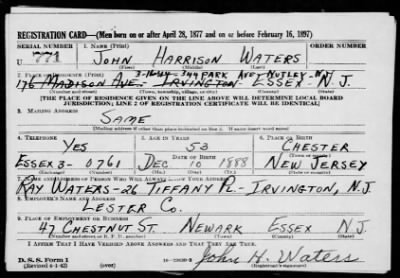 REGISTRATION CARD—(Men born on or after April 28, 1877 and on or before February 16, 1897)
SERIAL NUMBER 1. NAME (Print) ORDER NUMBER
U 771 JOHN HARRISON WATERS
(First) (Middle) (Last)
3-16-44-344 PARK AVE-NUTLEY-N.J.
2. PLACE OF RESIDENCE (Print)
176 MADISON AVE.- IRVINGTON ESSEX N.J.
(Number and street) (Town, township, village, or city) (County) (State)
[THE PLACE OF RESIDENCE GIVEN ON THE LINE ABOVE WILL DETERMINE LOCAL BOARD
JURISDICTION; LINE 2 OF REGISTRATION CERTIFICATE WILL BE IDENTICAL]
3. MAILING ADDRESS
SAME
[Mailing address if other than place indicated on line 2. If same insert word same]
4. TELEPHONE 5. AGE IN YEARS 6. PLACE OF BIRTH
YES 53 CHESTER
DATE OF BIRTH (Town or county)
ESSEX 3- 0761 DEC 10 1888 NEW JERSEY
(Exchange) (Number) (Mo.) (Day) (Yr.) (State or country)
7. NAME AND ADDRESS OF PERSON WHO WILL ALWAYS KNOW YOUR ADDRESS
RAY WATERS-26 TIFFANY PL.- IRVINGTON, N.J.
8. EMPLOYER'S NAME AND ADDRESS
LESTER CO.
9. PLACE OF EMPLOYMENT OR BUSINESS
47 CHESTNUT ST. NEWARK ESSEX N.J.
(Number and street or R. F. D. number) (Town) (County) (State)
I AFFIRM THAT I HAVE VERIFIED ABOVE ANSWERS AND THAT THEY ARE TRUE.
D. S. S. Form 1
(Revised 4-1-42) John H. Waters
(Registrant's signature)